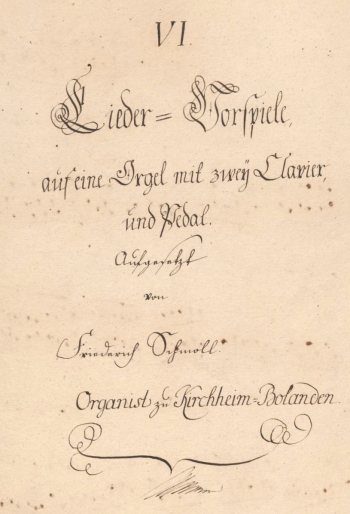 VI.
Lieder= Vorspiele,
auf eine Orgel mit zweÿ Clavier,
und Pedal.
Aufgesetzt
von
Friederich Schmoll.
Organist zu Kirchheim=Bolanden